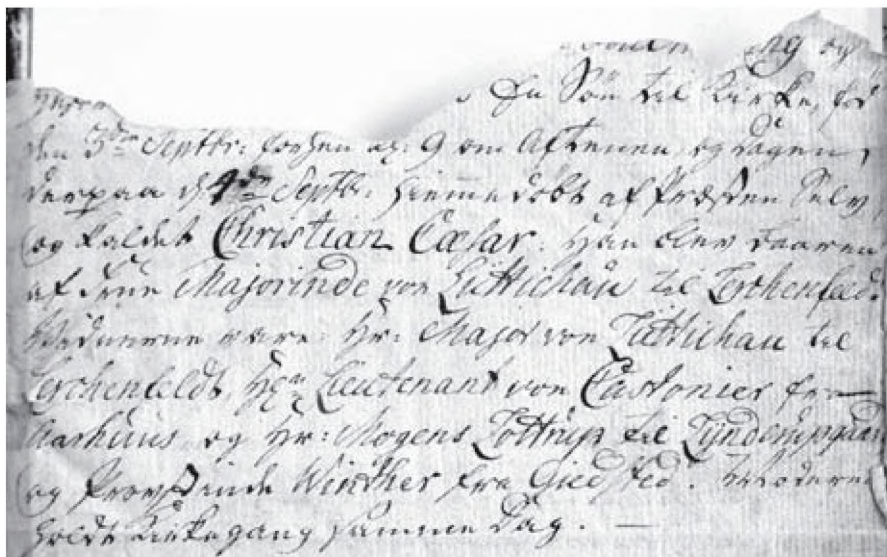 ng og
En Søn til Kirke, fød
den 3die Septbr: Aft 9 om Aftenen og Dagen
derpaa d 4de Septbr: hiemmedøbt af Præsten Selv,
og kaldet Christian Cæsar. Han blev baaren
af Frue Majorinde von Lüttichau til Lerchenfeld.
Vidnerne vare Hr: Major von Lüttichau til
Lerchenfeldt, Hr Lieutenant von Castonier fra
Aarhuus og Hr: Mogens Lottrup til Lynderupgaard
og Provstinde Winther fra Giedsted. Moderen
holdt Kirkegang samme Dag. —